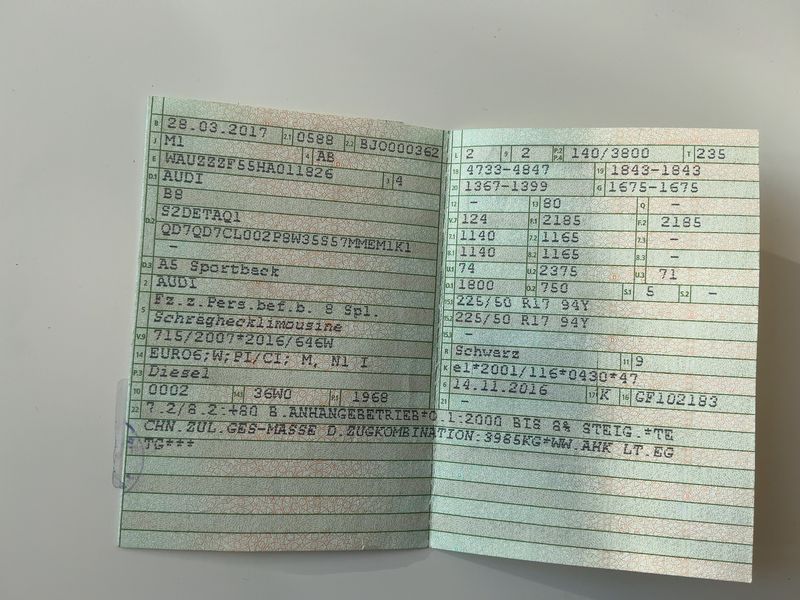 B 28.03.2017 2.1 0588 2.2 BJO000362
J M1 4 AB
E WAUZZZF55HA011826 3 4
D.1 AUDI
B8
D.2 S2DETAQ1
QD7QD7CL002P8W35S57MMEM1K1
-
D.3 A5 Sportback
2 AUDI
5 Fz.z.Pers.bef.b. 8 Spl.
Schräghecklimousine
V.9 715/2007*2016/646W
14 EURO6;W;PI/CI; M, N1 I
P.3 Diesel
10 0002 14.1 36W0 P.1 1968
L 2 9 2 P.2 P.4 140/3800 T 235
18 4733-4847 19 1843-1843
20 1367-1399 G 1675-1675
12 - 13 80 Q -
V.7 124 F.1 2185 F.2 2185
7.1 1140 7.2 1165 7.3 -
8.1 1140 8.2 1165 8.3 -
U.1 74 U.2 2375 U.3 71
O.1 1800 O.2 750 S.1 5 S.2 -
15.1 225/50 R17 94Y
15.2 225/50 R17 94Y
15.3 -
R Schwarz 11 9
K e1*2001/116*0430*47
6 14.11.2016 17 K 16 GF102183
21 -
22 7.2/8.2:+80 B.ANHÄNGEBETRIEB*O.1:2000 BIS 8% STEIG.*TE
CHN.ZUL.GES-MASSE D.ZUGKOMBINATION:3985KG*WW.AHK LT.EG
TG***